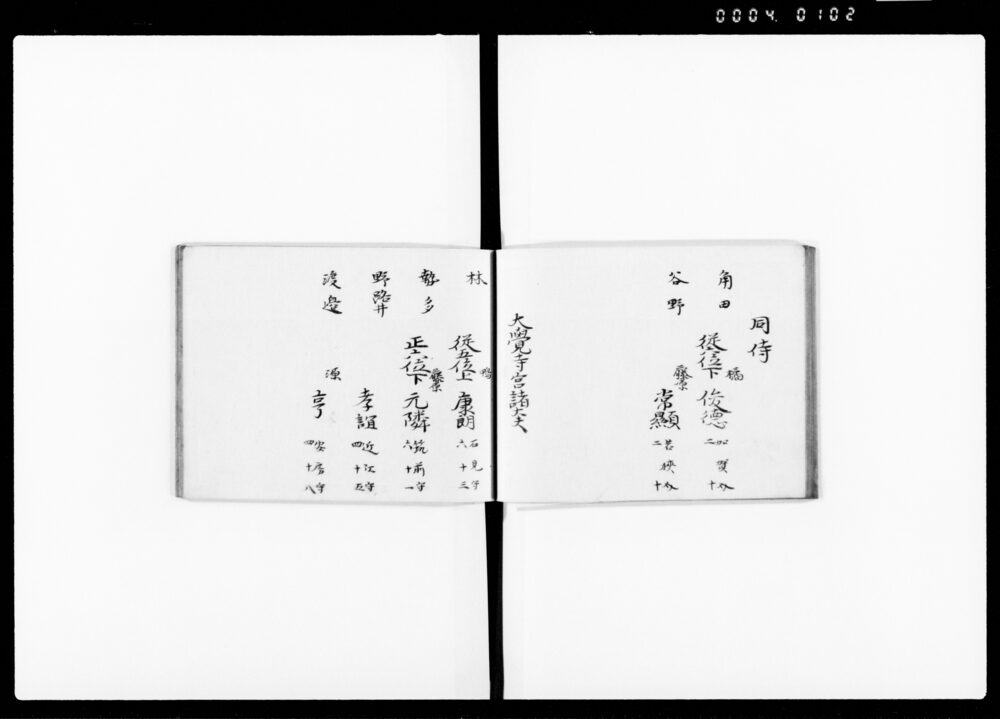 0004.0102
同侍
角田 従六位下 橘 俊德 加賀介 二十
谷野 藤原 常顯 若狭介 二十
大覺寺宮諸大夫
林 従五位上 鴨 康朗 石見守 六十三
多 正六位下 藤原 元隣 筑前守 六十一
野路井 孝誼 近江守 四十五
渡邉 源 亨 安房守 四十八